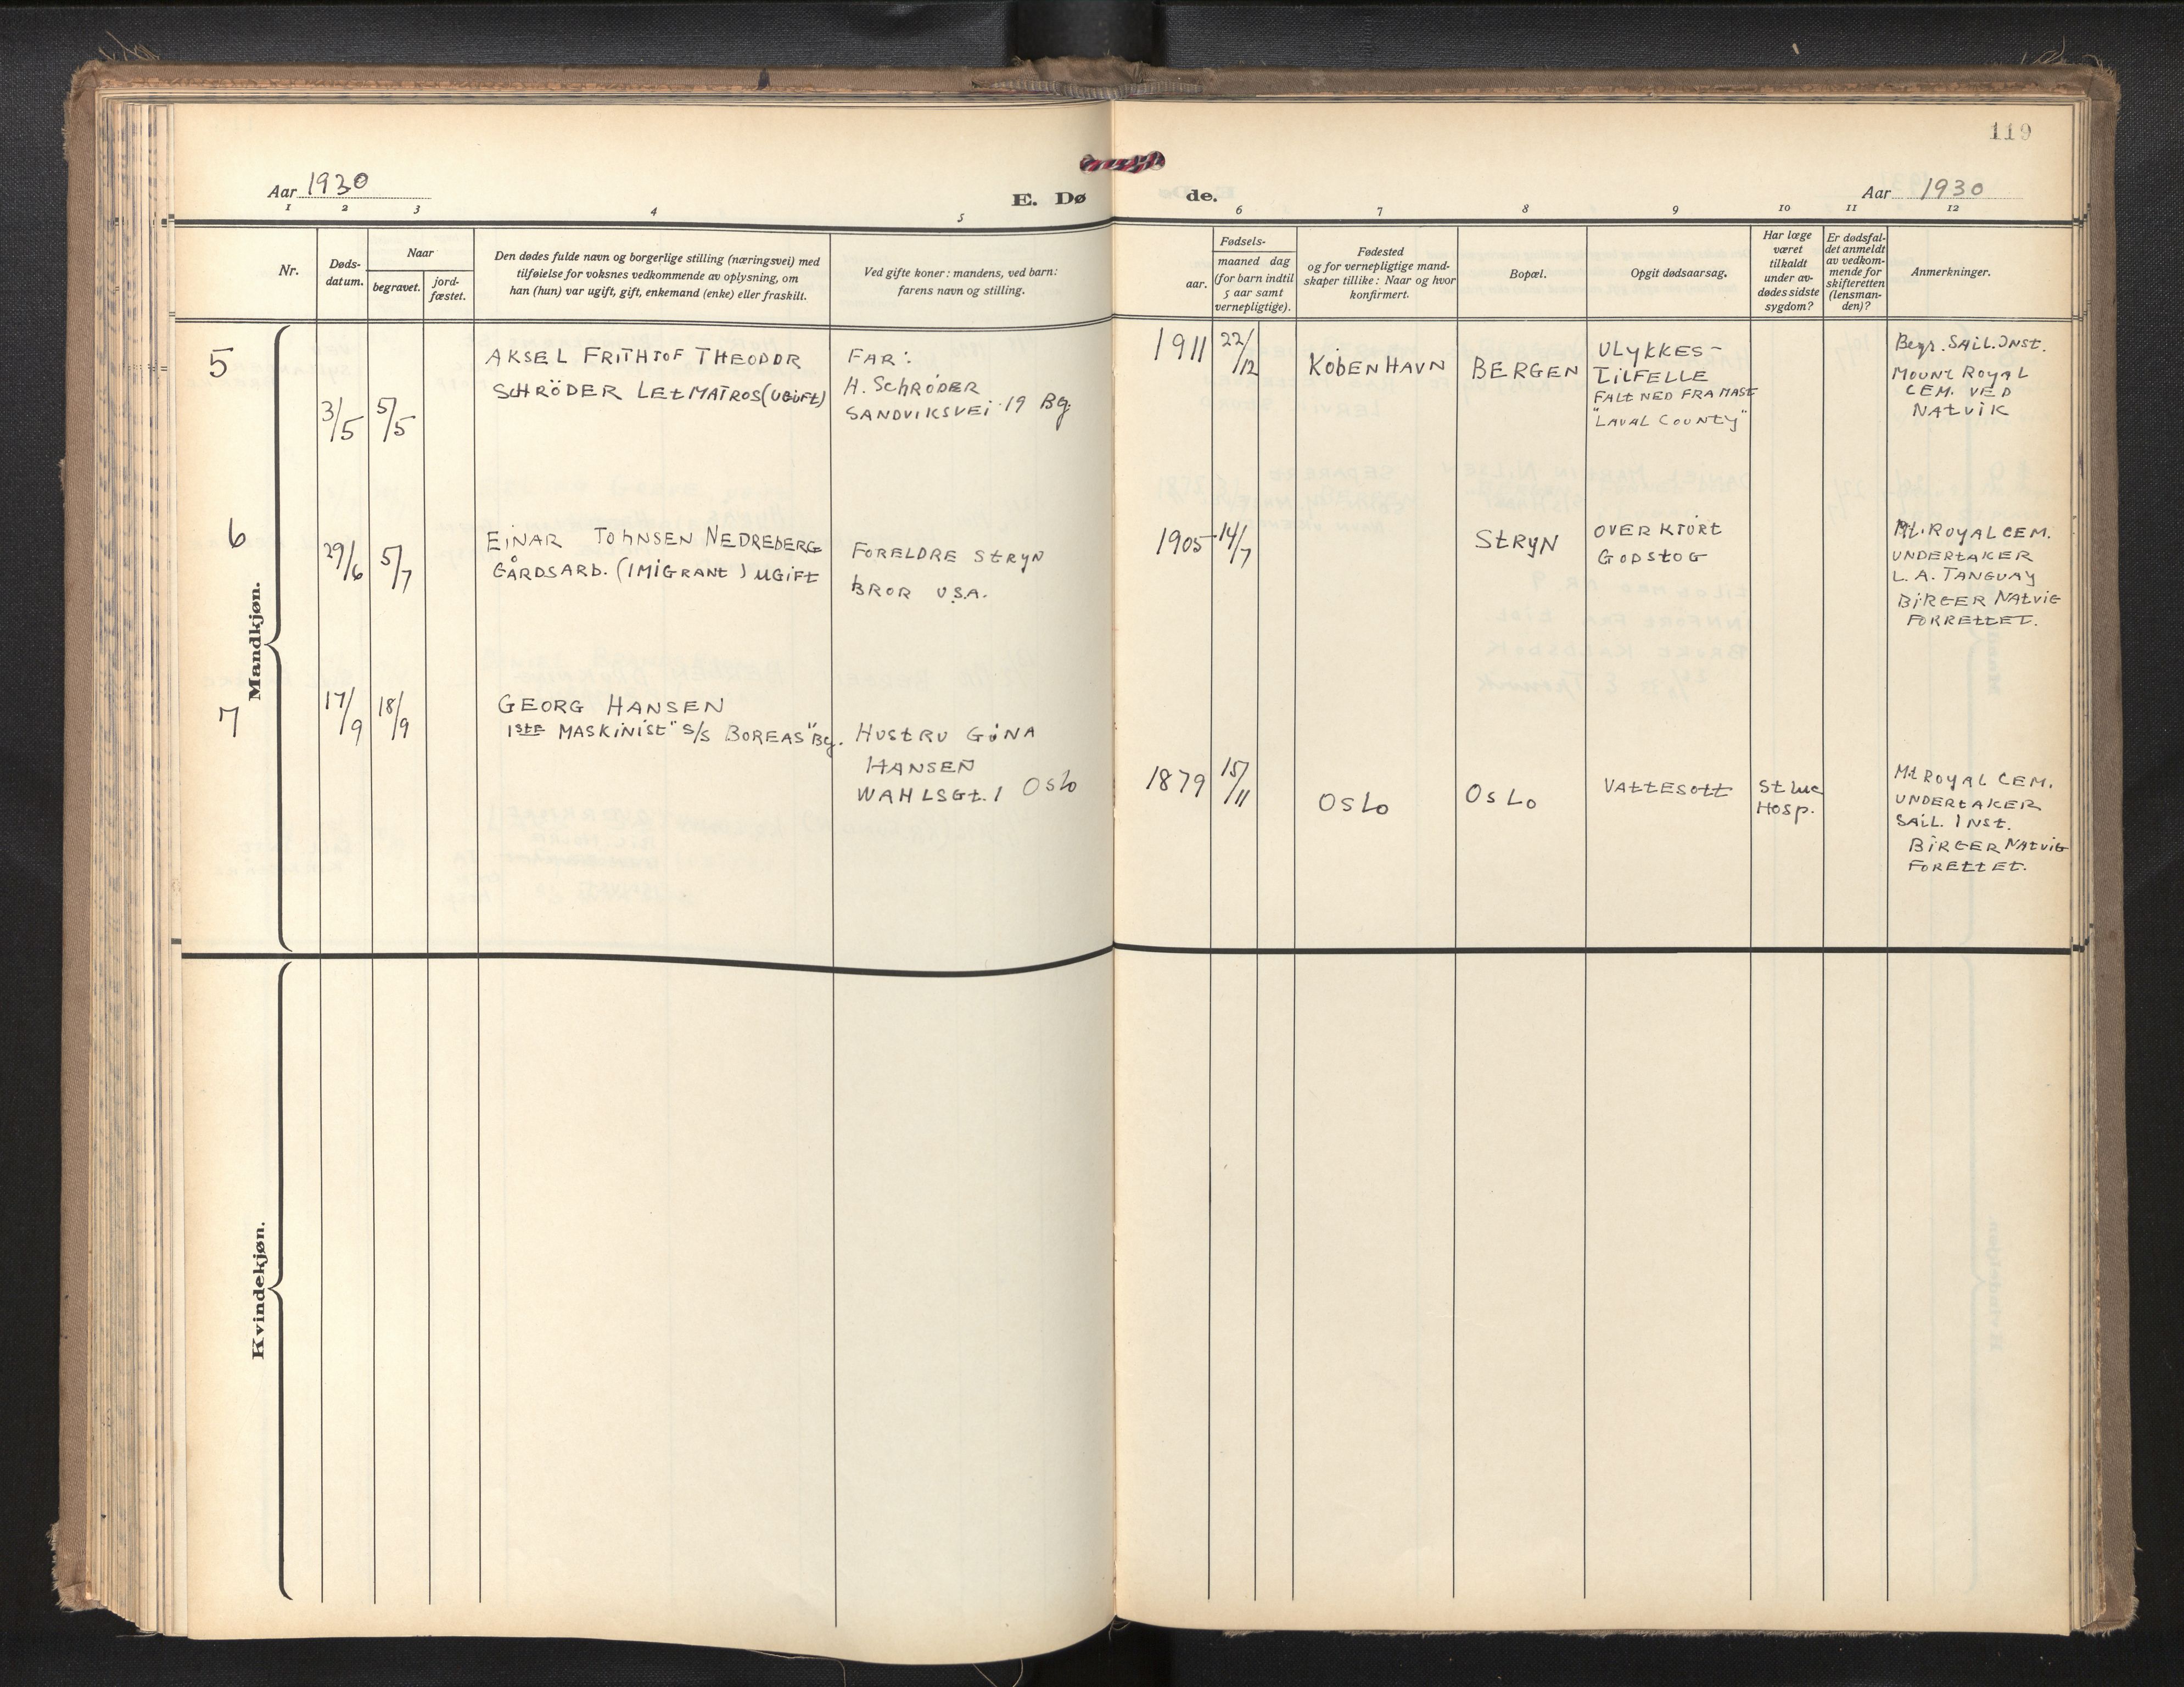 119
Aar 1930
E. Dø
de.
Aar 1930
1 2 3 4 5
6 7 8 9 10 11 12
Nr.
Døds-
datum.
Naar
begravet.
jord-
fæstet.
Den dødes fulde navn og borgerlige stilling (næringsvei) med
tilføielse for voksnes vedkommende av oplysning, om
han (hun) var ugift, gift, enkemand (enke) eller fraskilt.
Ved gifte koner: mandens, ved barn:
farens navn og stilling.
Fødsels-
aar.
maaned dag
(for barn indtil
5 aar samt
vernepligtige).
Fødested
og for vernepligtige mand-
skaper tillike: Naar og hvor
konfirmert.
Bopæl.
Opgit dødsaarsag.
Har læge
været
tilkaldt
under av-
dødes sidste
sygdom?
Er dødsfal-
det anmeldt
av vedkom-
mende for
skifteretten
(lensman-
den)?
Anmerkninger.
Mandkjøn.
5
3/5
5/5
AKSEL FRITHJOF THEODOR
SCHRÖDER LETMATROS (UGIFT)
FAR:
H. SCHRØDER
SANDVIKSVEI 19 Bg.
1911
22/12
KØBENHAVN
BERGEN
ULYKKES-
TILFELLE
FALT NED FRA MAST
"LAVAL COUNTY"
Begr. SAIL. INST.
MOUNT ROYAL
CEM. VED
NATVIK
6
29/6
5/7
EINAR JOHNSEN NEDREBERG
GÅRDSARB. (IMIGRANT) UGIFT
FORELDRE STRYN
BROR U.S.A.
1905
14/7
STRYN
OVERKJØRT
GODSTOG
Mt. ROYAL CEM.
UNDERTAKER
L. A. TANGUAY
BIRGER NATVIG
FORRETTET.
7
17/9
18/9
GEORG HANSEN
1STE MASKINIST "S/S BOREAS" Bg.
HUSTRU GINA
HANSEN
WAHLSGT. 1 OSLO
1879
15/11
OSLO
OSLO
VATTESOTT
St Luc
HOSP.
Mt ROYAL CEM.
UNDERTAKER
SAIL. INST.
BIRGER NATVIG
FORETTET.
Kvindekjøn.